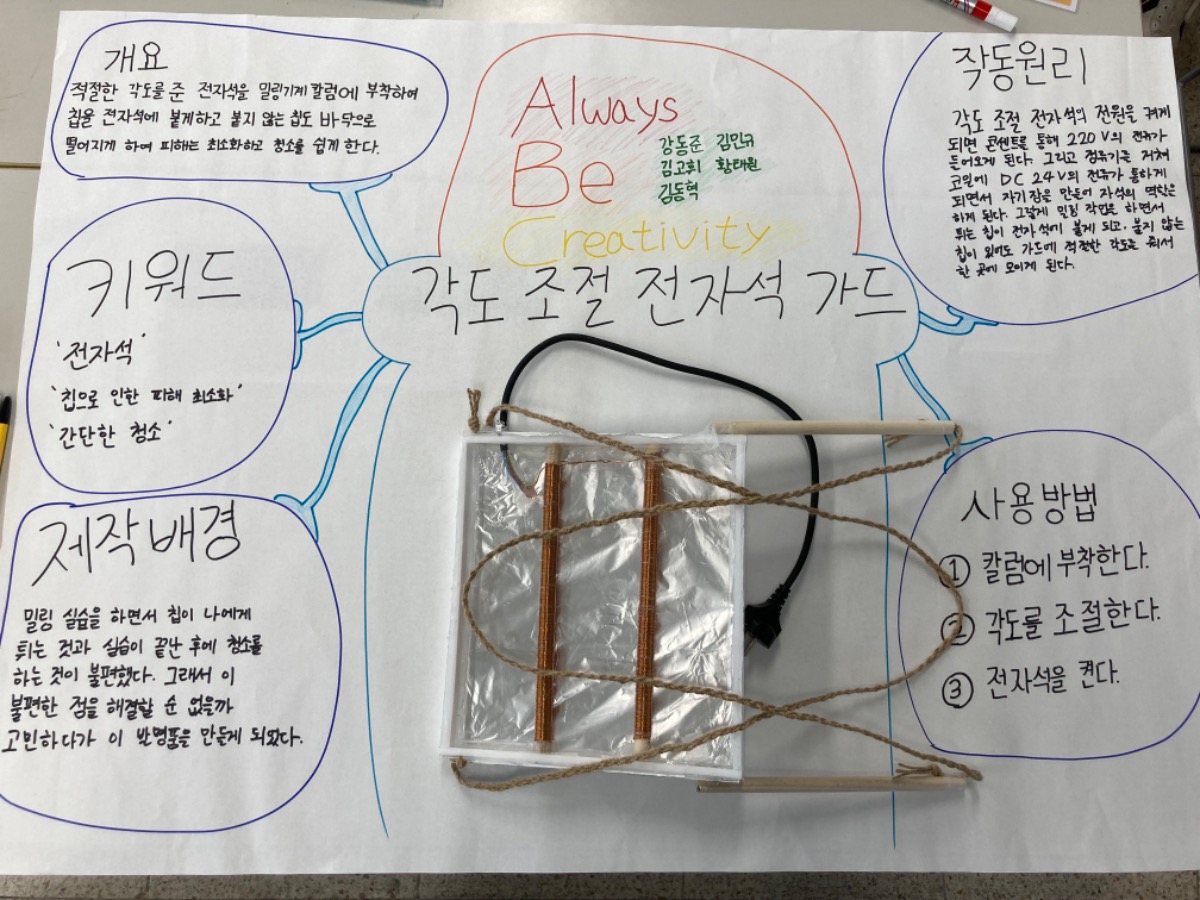 개요
적절한 각도를 준 전자석을 밀링기계 칼럼에 부착하여
칩을 전자석에 붙게하고 붙지 않는 칩도 바닥으로
떨어지게 하여 피해는 최소화하고 청소를 쉽게 한다.
키워드
'전자석'
'칩으로 인한 피해 최소화'
'간단한 청소'
제작배경
밀링 실습을 하면서 칩이 나에게
튀는 것과 실습이 끝난 후에 청소를
하는 것이 불편했다. 그래서 이
불편한 점을 해결할 순 없을까
고민하다가 이 발명품을 만들게 되었다.
Always
Be
Creativity
강동준 김민규
김고휘 황태원
김동혁
각도 조절 전자석 가드
작동원리
각도 조절 전자석의 전원을 켜게
되면 콘센트를 통해 220V의 전류가
들어오게 된다. 그리고 정류기를 거쳐
코일에 DC 24V의 전류가 통하게
되면서 자기장을 만들어 자석의 역할을
하게 된다. 그렇게 밀링 작업을 하면서
튀는 칩이 전자석에 붙게 되고, 붙지 않는
칩이 있어도 가드에 적절한 각도를 줘서
한 곳에 모이게 된다.
사용방법
① 칼럼에 부착한다.
② 각도를 조절한다.
③ 전자석을 켠다.